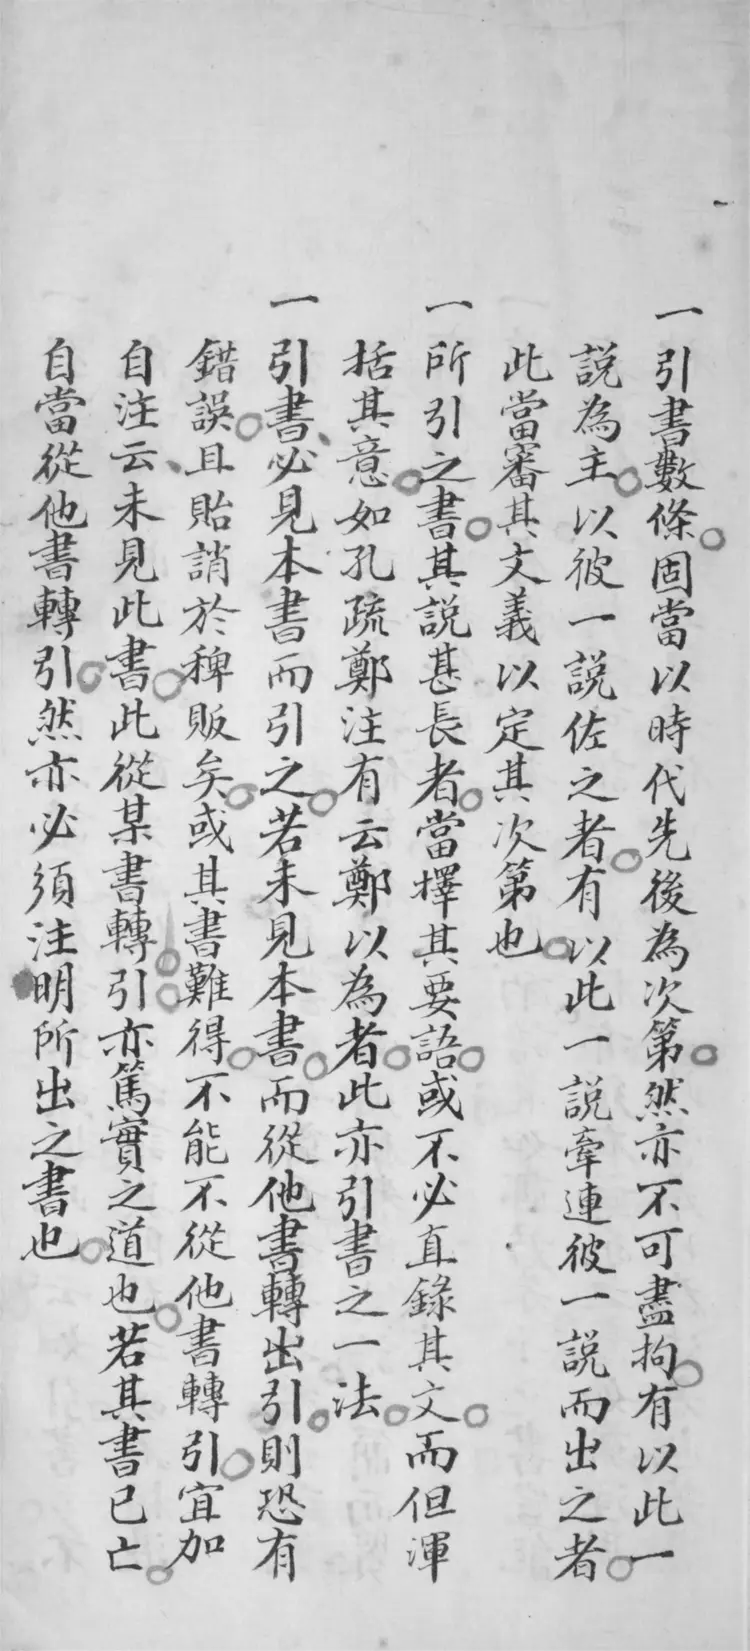 一引書數條固當以時代先後為次第然亦不可盡拘有以此一
說為主以彼一說佐之者有以此一說牽連彼一說而出之者
此當審其文義以定其次第也
一所引之書其說甚長者當擇其要語或不必直錄其文而但渾
括其意如孔疏鄭注有云鄭以為者此亦引書之一法
一引書必見本書而引之若未見本書而從他書轉出引則恐有
錯誤且貽誚於稗販矣或其書難得不能不從他書轉引宜加
自注云未見此書此從某書轉引亦篤實之道也若其書已亡
自當從他書轉引然亦必須注明所出之書也